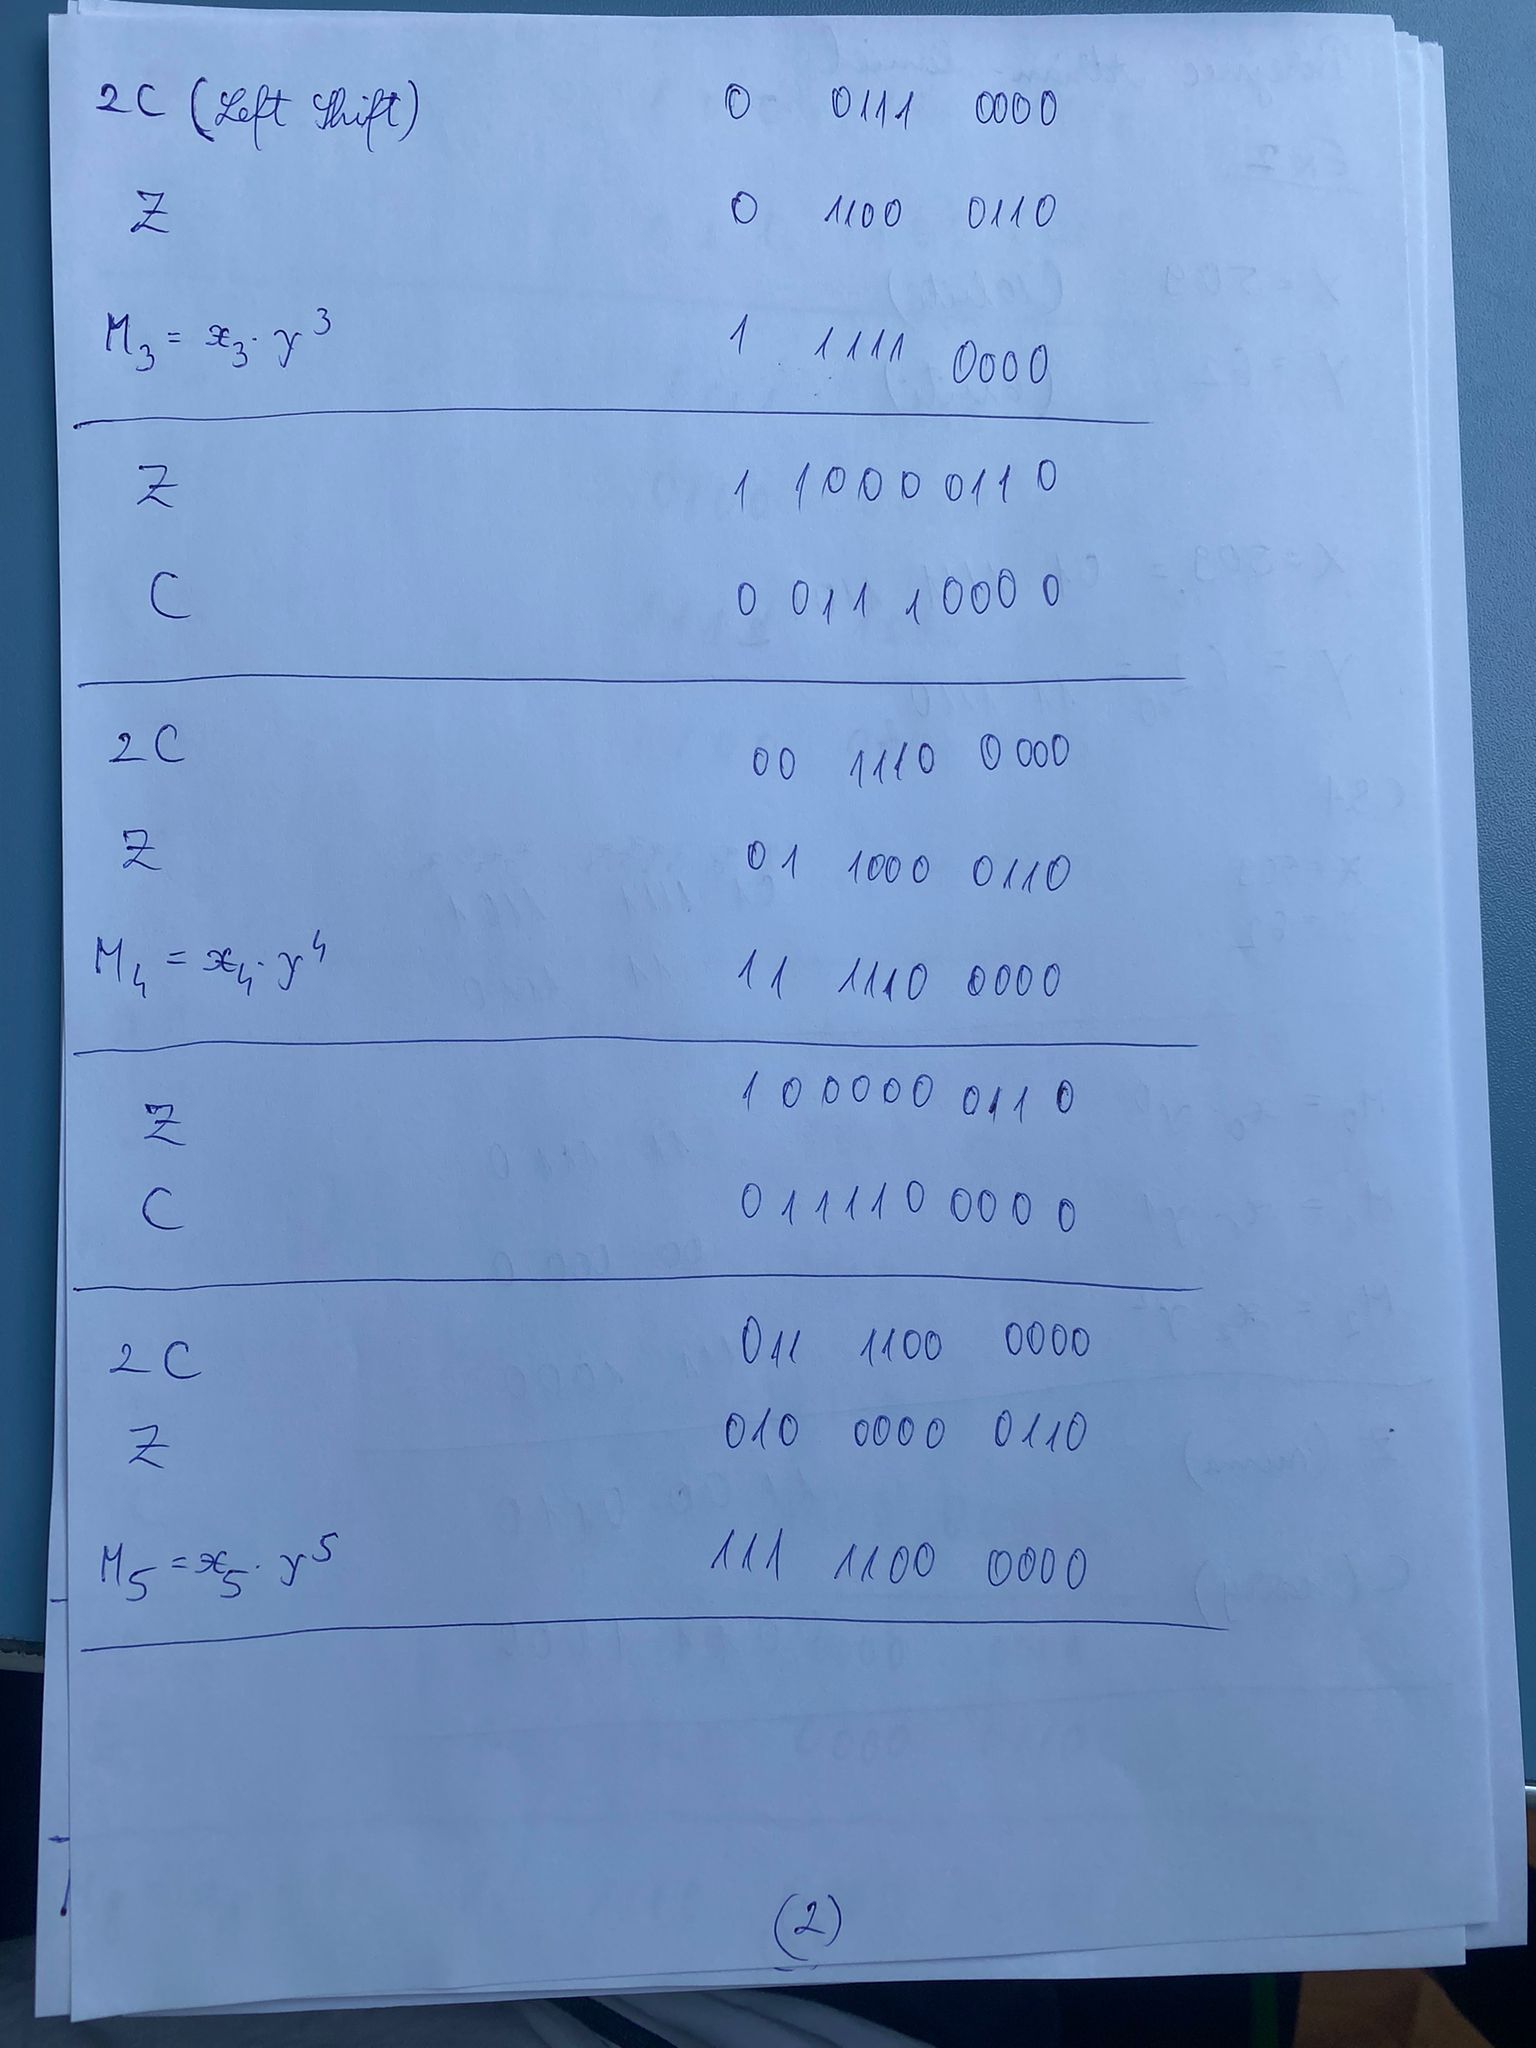 2C (Left Shift) 0 0111 0000
Z 0 1100 0110
M₃ = x₃ · y³ 1 1111 0000
Z 1 1000 0110
C 0 0111 0000
2C 00 1110 0000
Z 01 1000 0110
M₄ = x₄ · y⁴ 11 1110 0000
Z 100000 0110
C 011110 0000
2C 011 1100 0000
Z 010 0000 0110
M₅ = x₅ · y⁵ 111 1100 0000
(2)